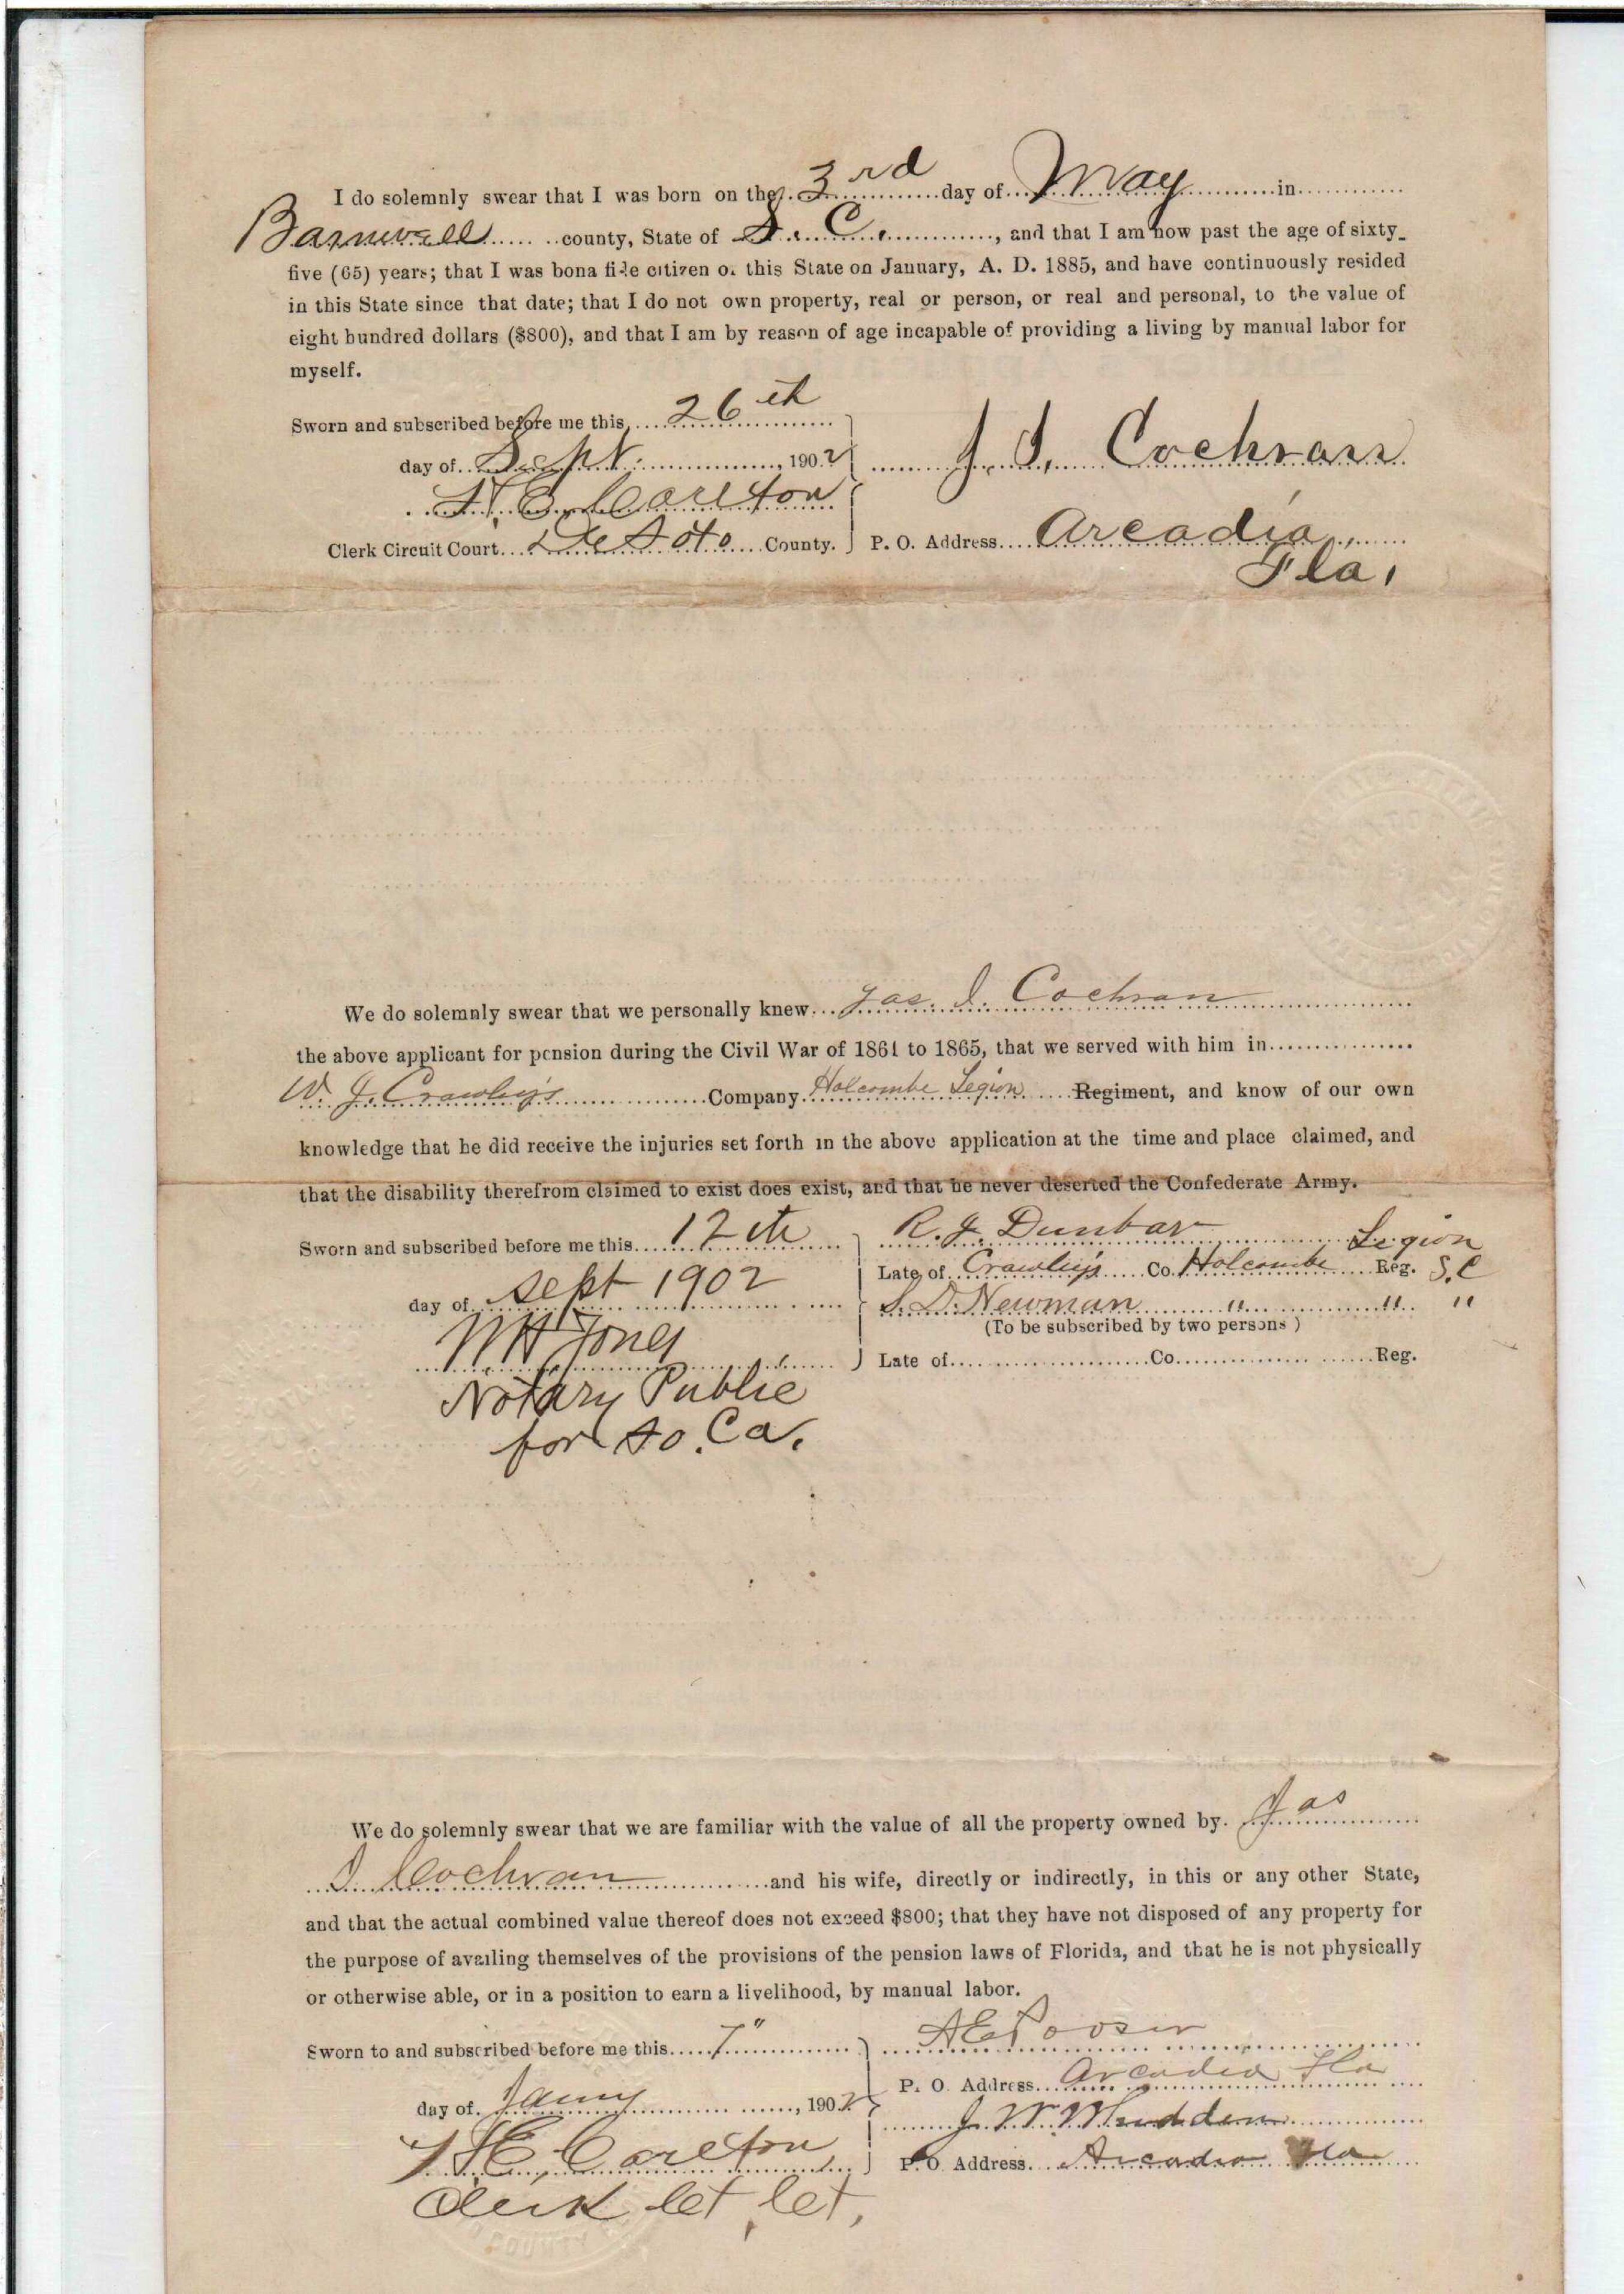 I do solemnly swear that I was born on the 3rd day of May in
Barnwell county, State of S. C., and that I am now past the age of sixty-
five (65) years; that I was bona fide citizen of this State on January, A. D. 1885, and have continuously resided
in this State since that date; that I do not own property, real or person, or real and personal, to the value of
eight hundred dollars ($800), and that I am by reason of age incapable of providing a living by manual labor for
myself.
Sworn and subscribed before me this 26th
day of Sept. 1902
J. I. Cochran
Carlton
Clerk Circuit Court De Soto County.
P. O. Address Arcadia,
Fla.
We do solemnly swear that we personally knew Jas. I. Cochran
the above applicant for pension during the Civil War of 1861 to 1865, that we served with him in
W. J. Crawley's Company Holcombe Legion Regiment, and know of our own
knowledge that he did receive the injuries set forth in the above application at the time and place claimed, and
that the disability therefrom claimed to exist does exist, and that he never deserted the Confederate Army.
Sworn and subscribed before me this 12th
R. J. Dunbar Legion
Late of Crawley's Co. Holcombe Reg. S.C
day of Sept 1902
S. D. Newman " " "
(To be subscribed by two persons)
W H Jones
Late of Co. Reg.
Notary Public
for So. Ca.
We do solemnly swear that we are familiar with the value of all the property owned by Jas
I Cochran and his wife, directly or indirectly, in this or any other State,
and that the actual combined value thereof does not exceed $800; that they have not disposed of any property for
the purpose of availing themselves of the provisions of the pension laws of Florida, and that he is not physically
or otherwise able, or in a position to earn a livelihood, by manual labor.
Sworn to and subscribed before me this 7"
A E Pooser
P. O. Address Arcadia Fla
day of Jany 1902
J. W. Whidden
Carlton,
P. O. Address Arcadia Fla
Clerk
COUNTY